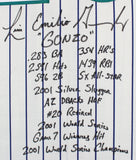 Luis Emilio Gonzalez
"GONZO"
.283 BA 354 HR's
2,591 Hits 1439 RBI
596 2B 5x All-Star
2001 Silver Slugger
AZ DBacks HOF
#20 Retired
2001 World Series
Game 7 Winning Hit
2001 World Series Champions